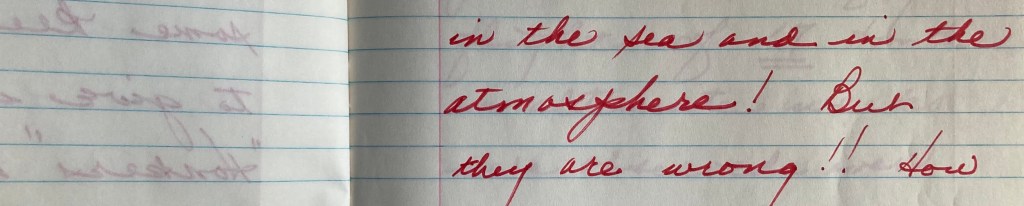 in the sea and in the
atmosphere! But
they are wrong!! How